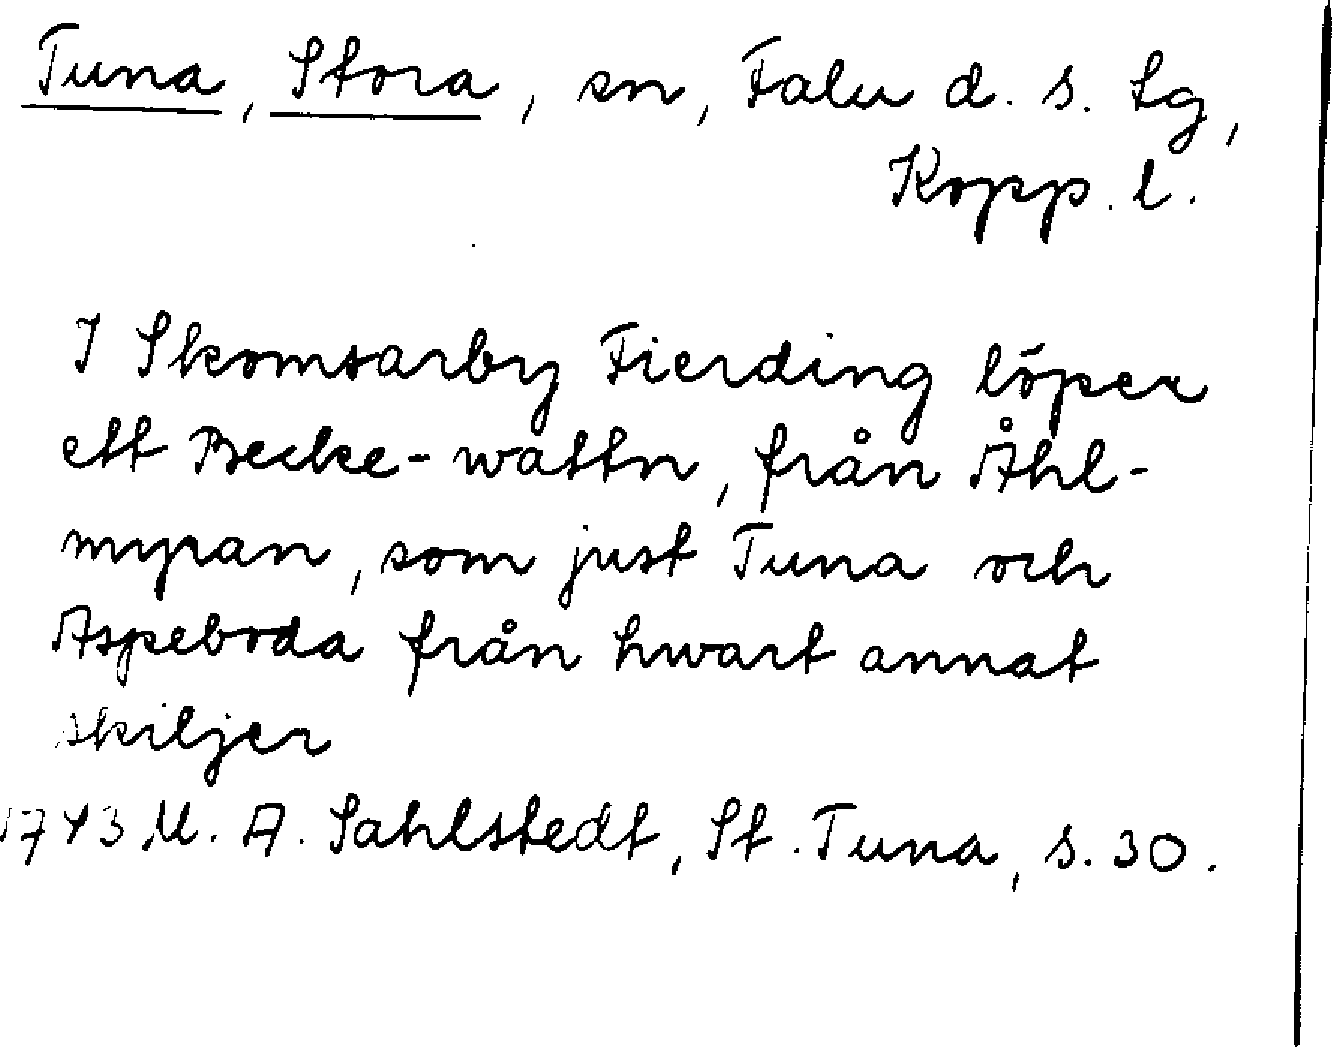 Tuna, Stora, sn, Falu d. s. tg,
Kopp. l.
I Skomsarby Fierding löper
ett Becke-wattn, från Åhl-
myran, som just Tuna och
Aspeboda från hwart annat
skiljer
1743 M. A. Sahlstedt, St. Tuna, s. 30.